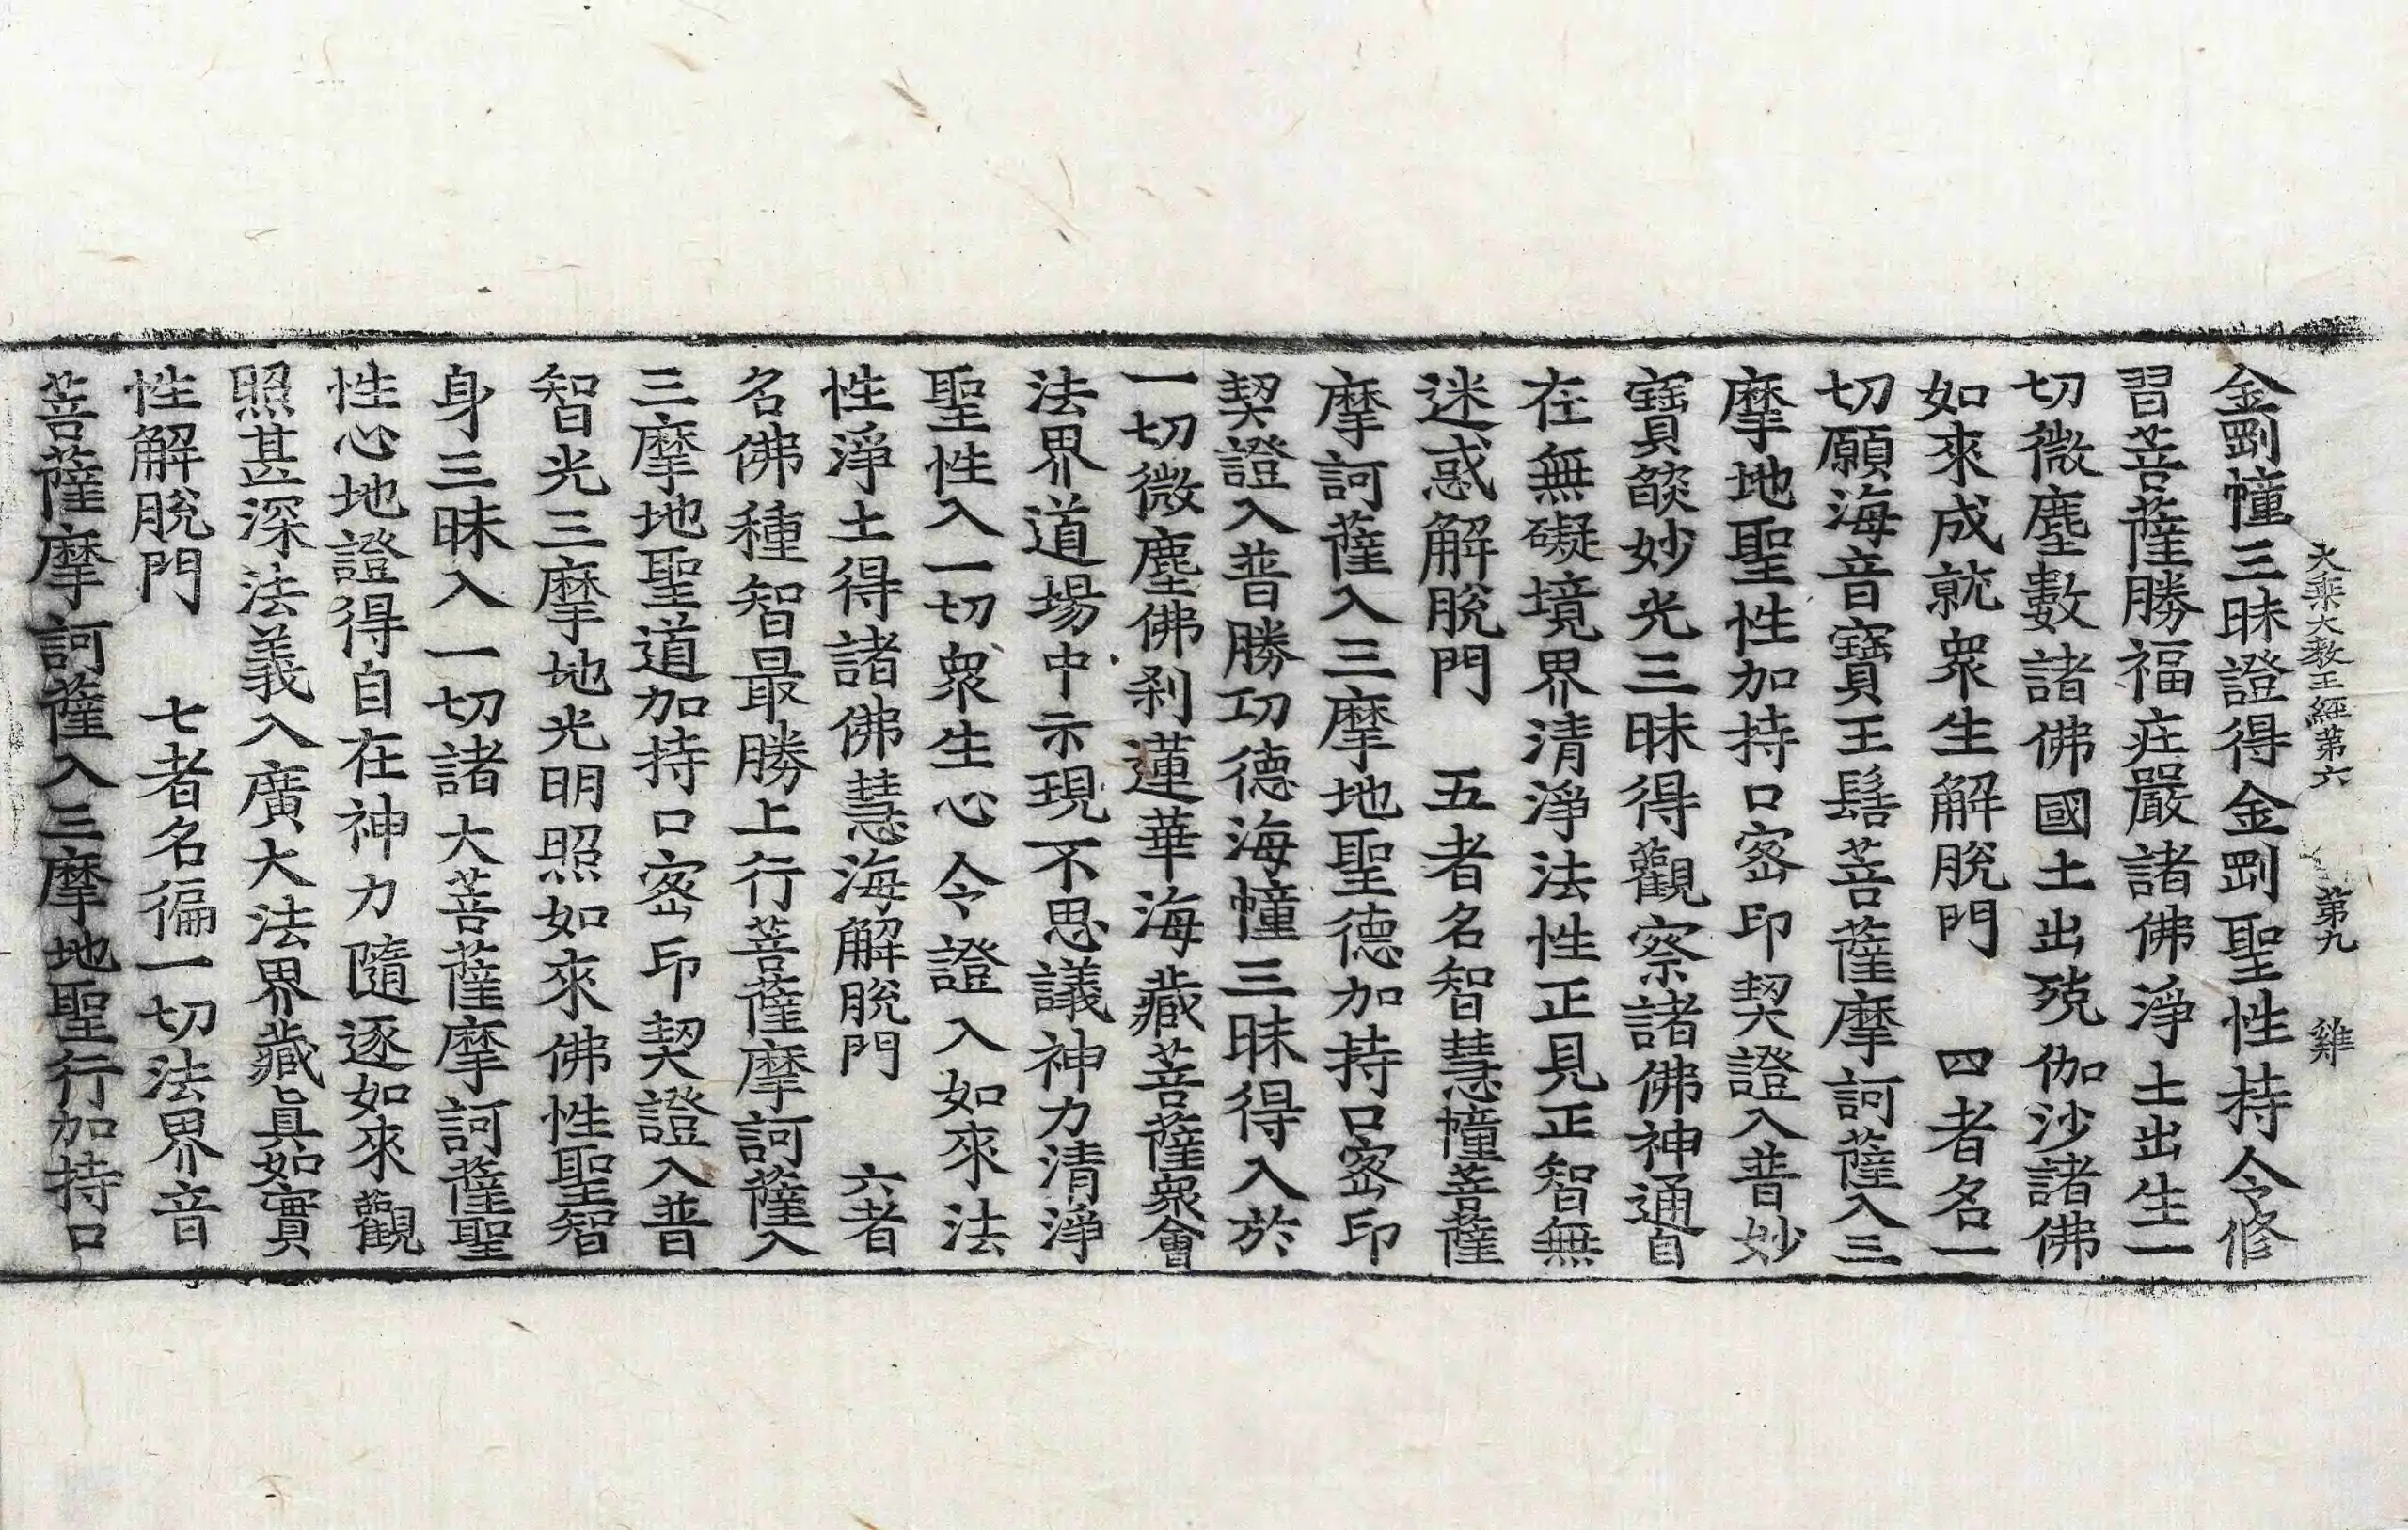 大乘大教王經第六　第九　雞
金剛幢三昧證得金剛聖性持令修
習菩薩勝福疘嚴諸佛淨土出生一
切微塵數諸佛國土出殑伽沙諸佛
如來成就衆生解脫門　四者名一
切願海音寶王髻菩薩摩訶薩入三
摩地聖性加持口密印契證入普妙
寶燄妙光三昧得觀察諸佛神通自
在無礙境界清淨法性正見正智無
迷惑解脫門　五者名智慧幢菩薩
摩訶薩入三摩地聖德加持口密印
契證入普勝功德海幢三昧得入於
一切微塵佛刹蓮華海藏菩薩衆會
法界道場中示現不思議神力清淨
聖性入一切衆生心令證入如來法
性淨土得諸佛慧海解脫門　六者
名佛種智最勝上行菩薩摩訶薩入
三摩地聖道加持口密印契證入普
智光三摩地光明照如來佛性聖智
身三昧入一切諸大菩薩摩訶薩聖
性心地證得自在神力隨逐如來觀
照甚深法義入廣大法界藏眞如實
性解脫門　七者名徧一切法界音
菩薩摩訶薩入三摩地聖行加持口